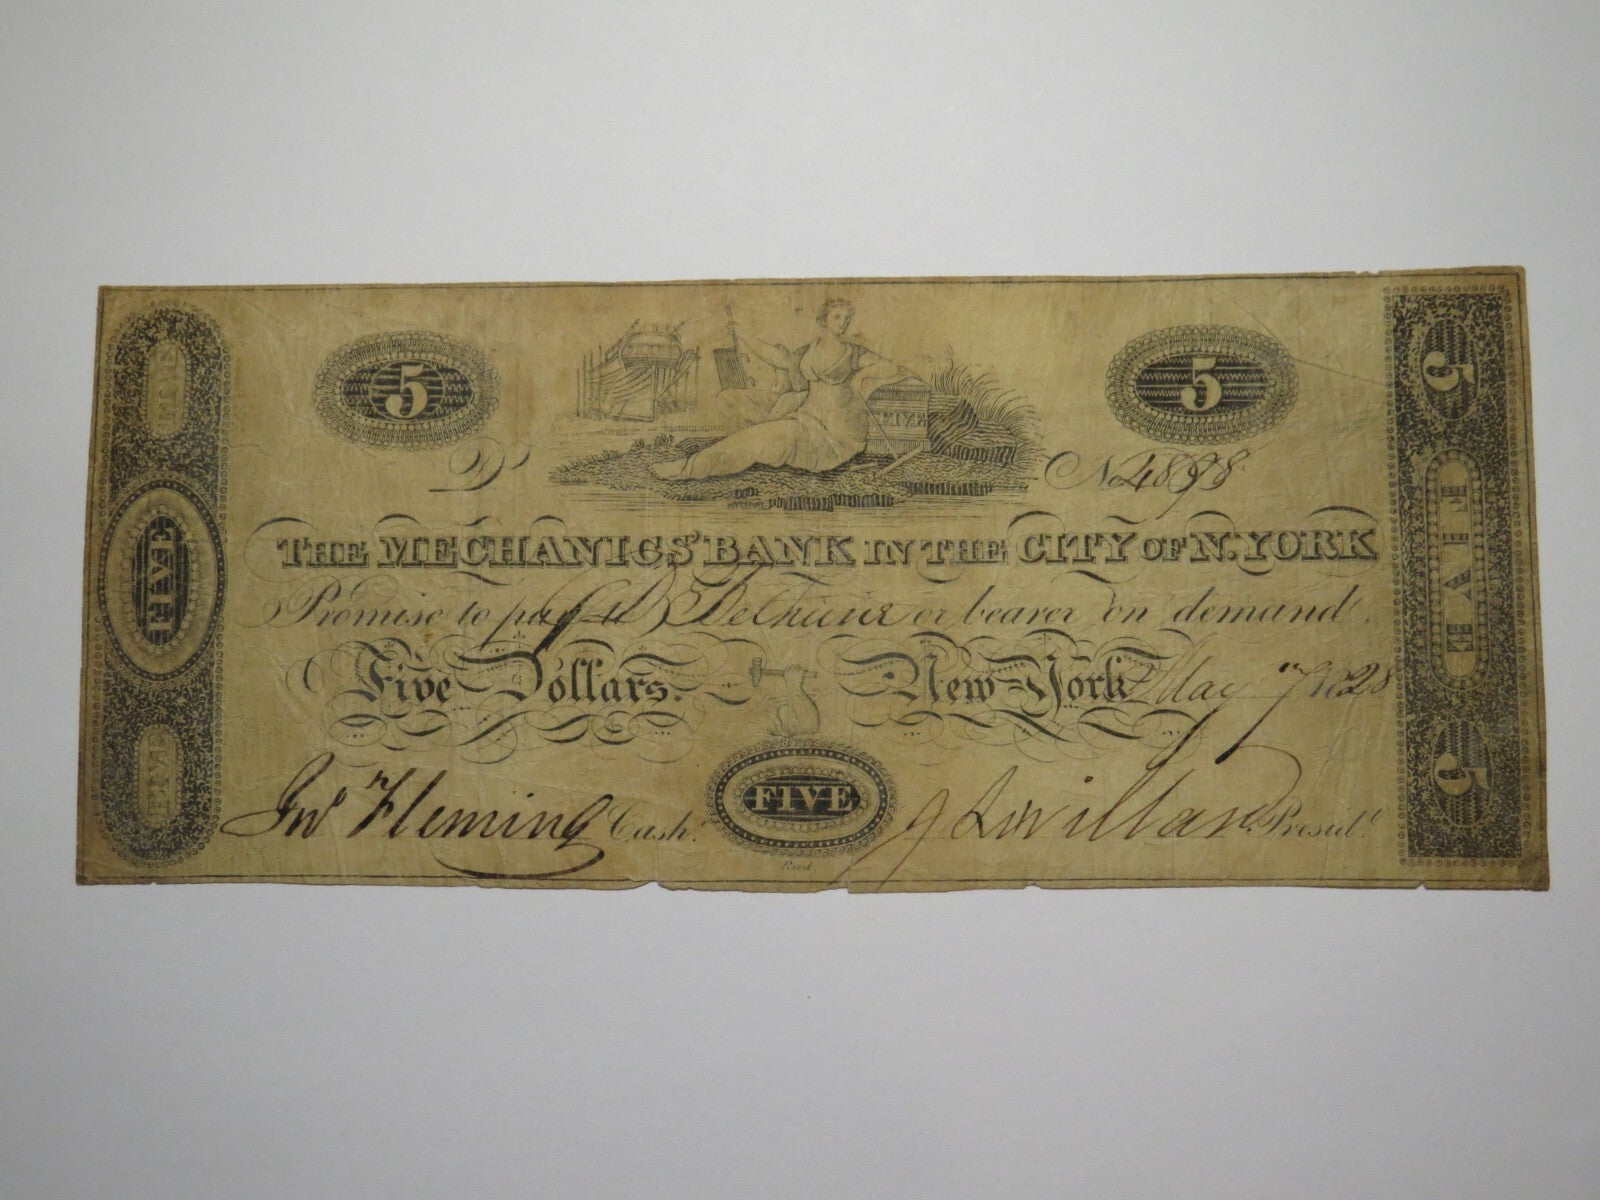 FIVE
FIVE
FIVE
5
5
D
No 4898
THE MECHANICS' BANK IN THE CITY OF N. YORK
Promise to pay to or bearer on demand
Five Dollars. New-York May 7 1828
Jno Fleming Cash.r FIVE Presid.t
5
FIVE
5